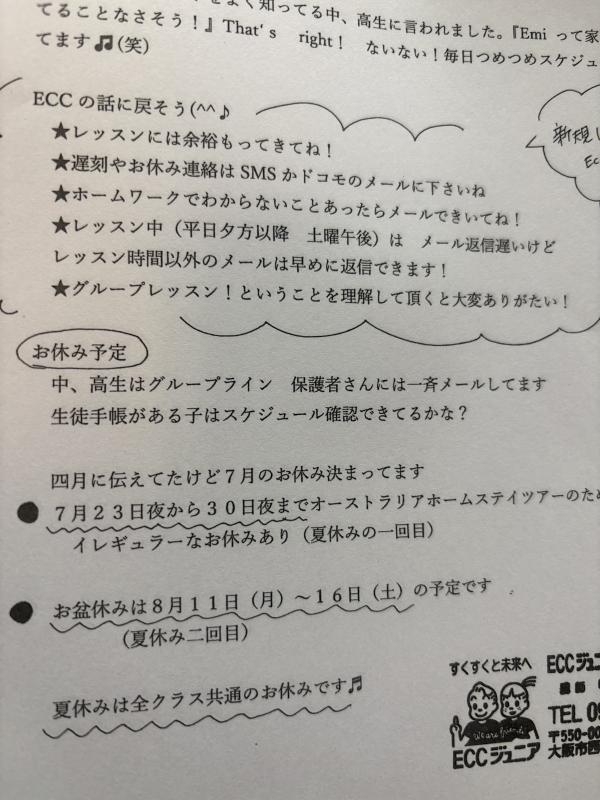 よく知ってる中、高生に言われました。『Emi って家
てることなさそう！』That's right！ ないない！毎日つめつめスケジュ
てます♫(笑)
ECC の話に戻そう(^^♪
★レッスンには余裕もってきてね！
★遅刻やお休み連絡は SMS かドコモのメールに下さいね
★ホームワークでわからないことあったらメールできいてね！
★レッスン中（平日夕方以降 土曜午後）は メール返信遅いけど
レッスン時間以外のメールは早めに返信できます！
★グループレッスン！ということを理解して頂くと大変ありがたい！
新規
EC
お休み予定
中、高生はグループライン 保護者さんには一斉メールしてます
生徒手帳がある子はスケジュール確認できてるかな？
四月に伝えてたけど７月のお休み決まってます
● ７月２３日夜から３０日夜までオーストラリアホームステイツアーのため
イレギュラーなお休みあり（夏休みの一回目）
● お盆休みは８月１１日（月）～１６日（土）の予定です
（夏休み二回目）
夏休みは全クラス共通のお休みです♬
すくすくと未来へ
We are friends
ECCジュニア
ECCジュニ
講師
TEL 09
〒550-00
大阪市西